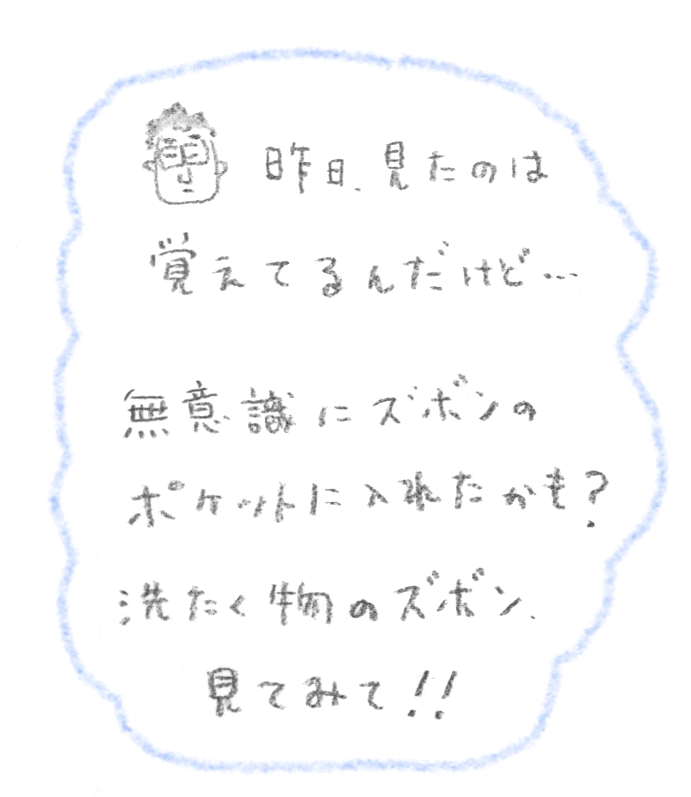 昨日、見たのは
覚えてるんだけど…
無意識にズボンの
ポケットに入れたかも?
洗たく物のズボン、
見てみて!!